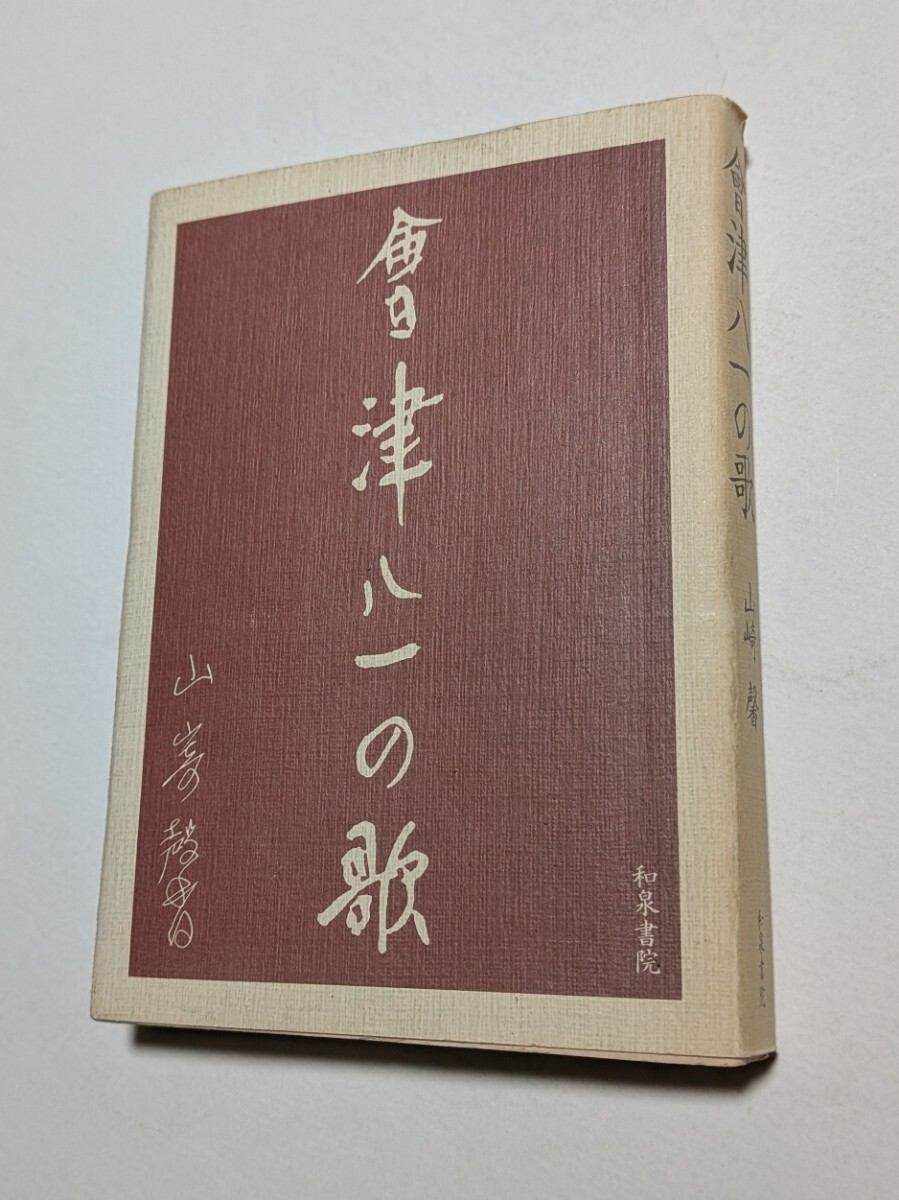 會津八一の歌
山嵜馨
和泉書院
會津八一の歌
山崎 馨
和泉書院